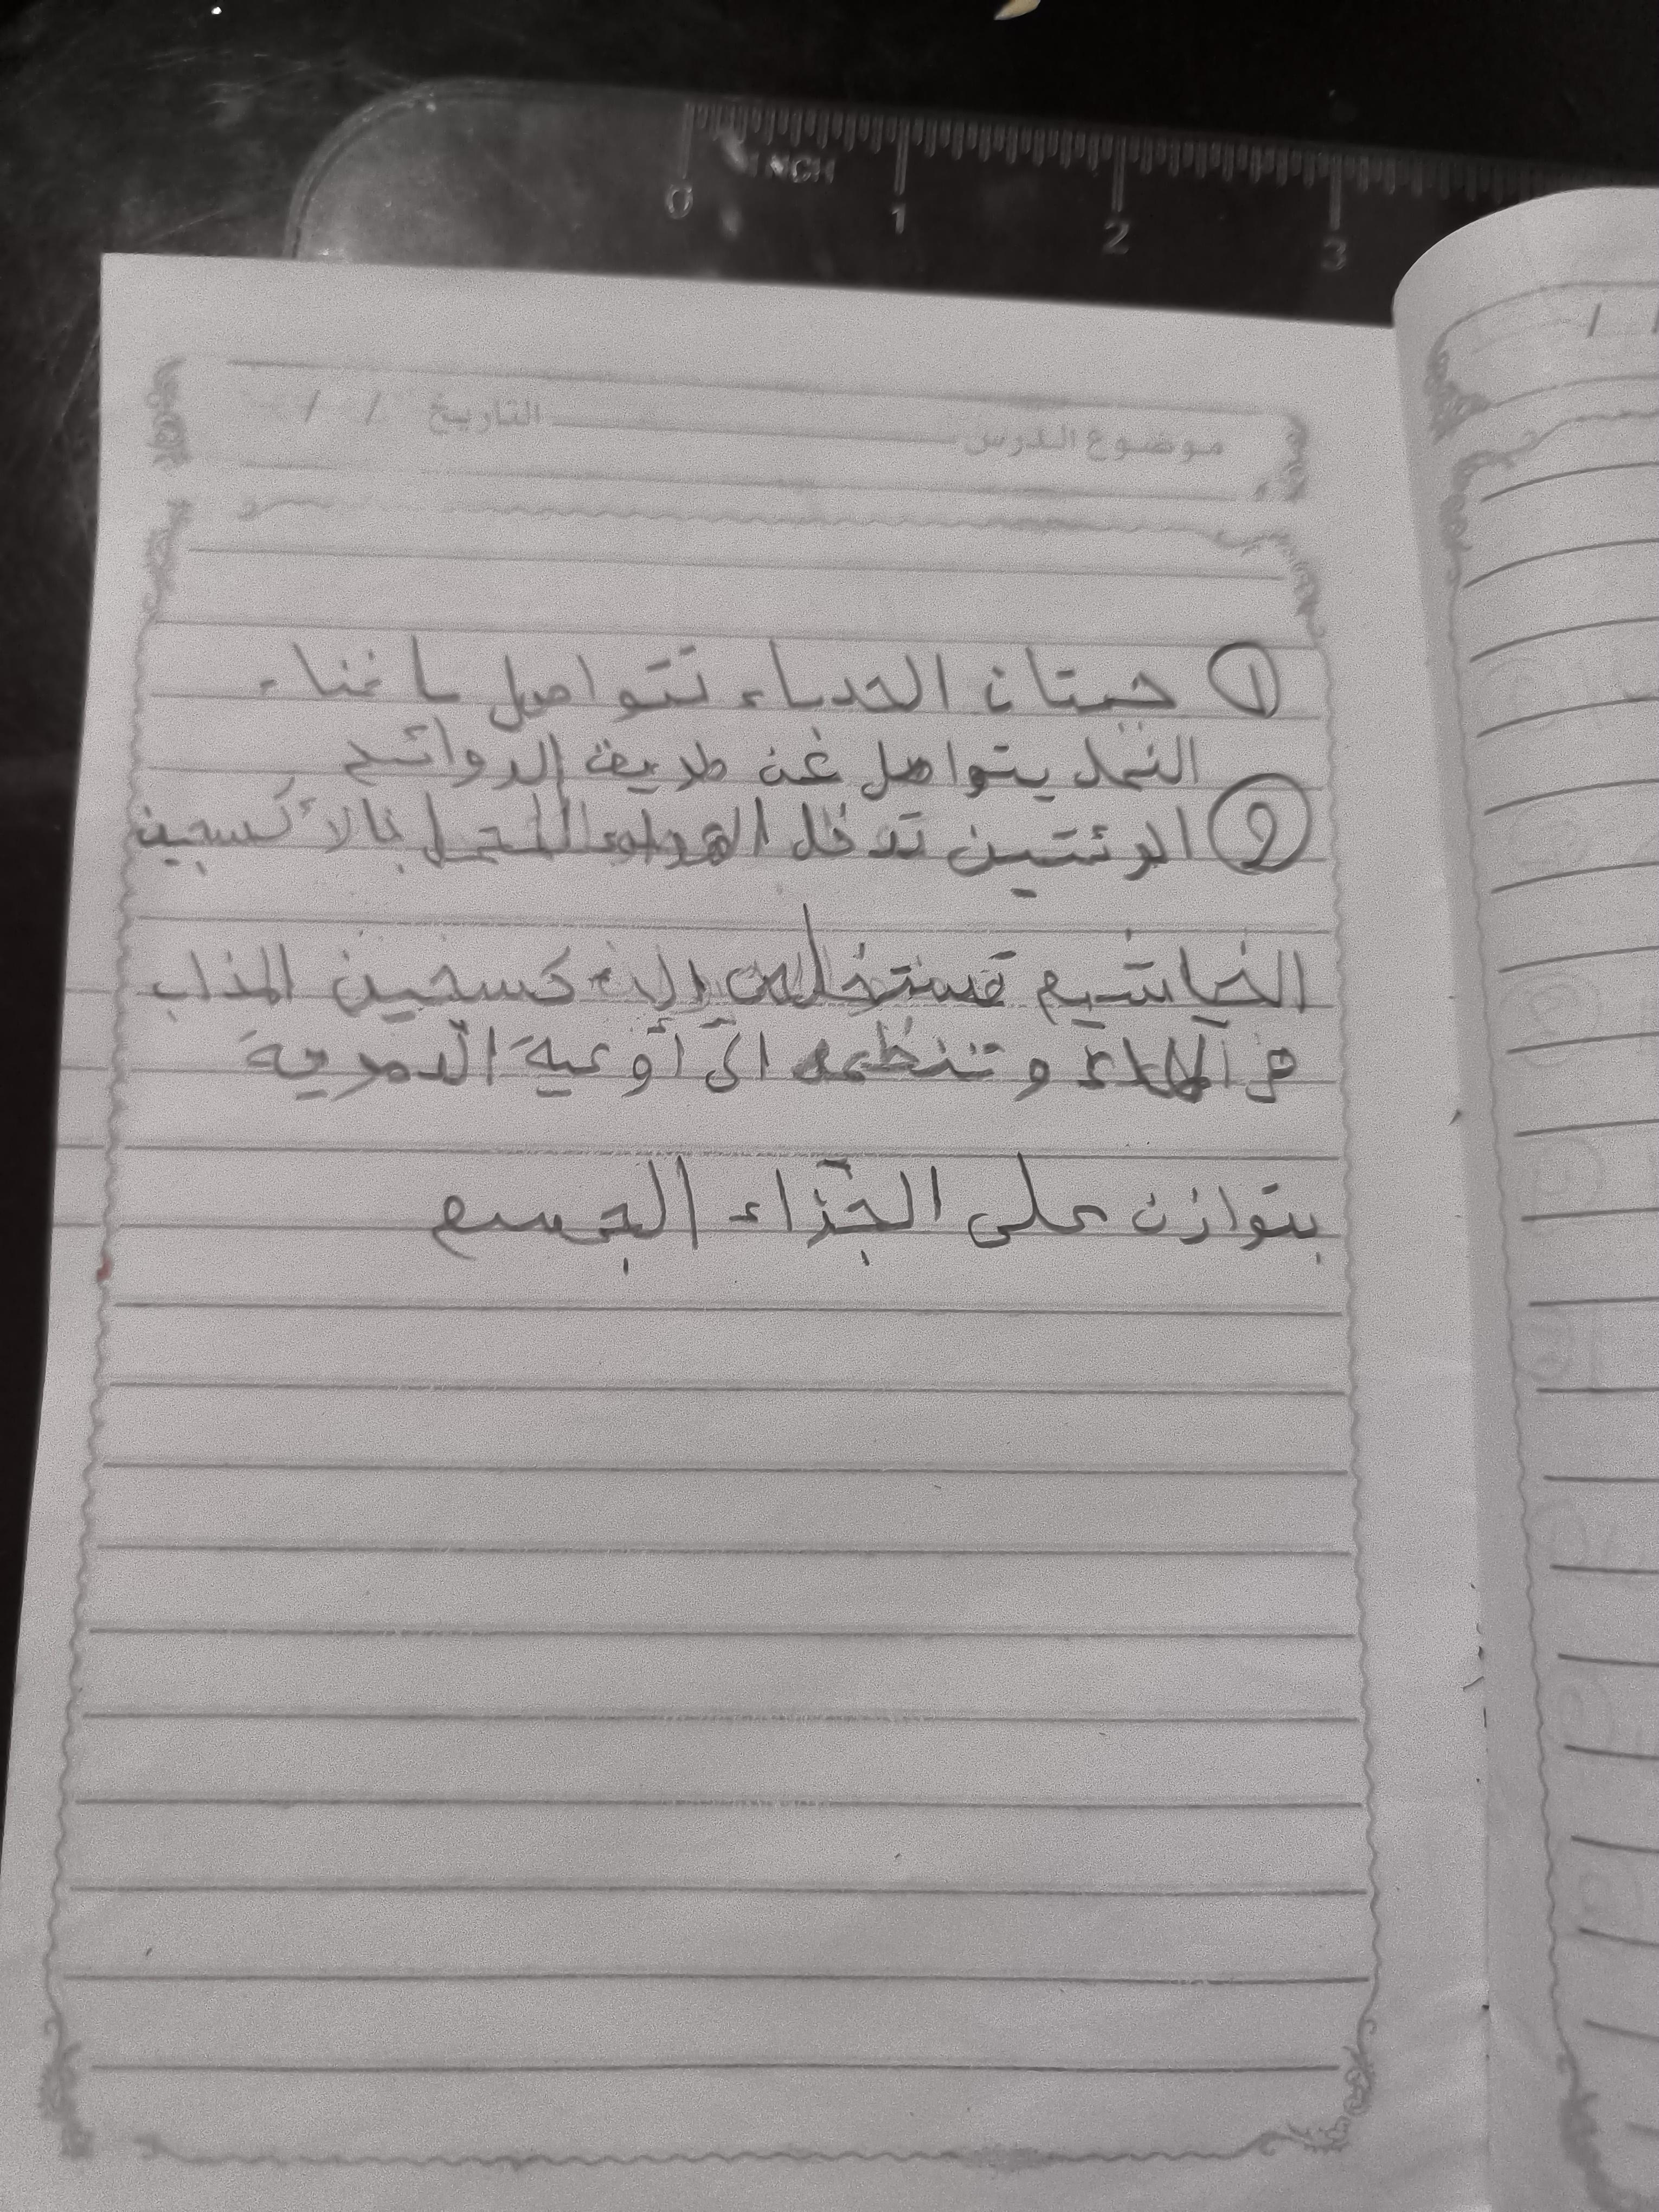 INCH
0 1 2 3
موضوع الدرس التاريخ / /
① حيتان الحدباء تتواصل باغناء
النمل يتواصل عن طريق الروائح
② الرئتين تدخل الهواء المحمل بالأكسجين
الخياشيم تستخلص الأكسجين المذاب
في الماء و تنظمه الى أوعية الدموية
بتوازن على الجزاء الجسم